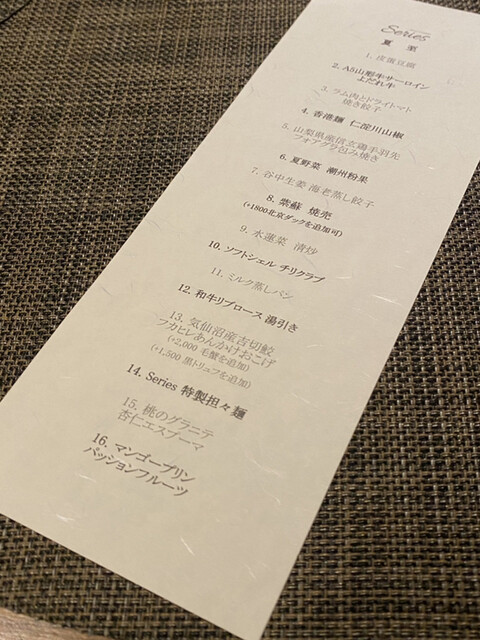 Series
夏 至
1. 皮蛋豆腐
2. A5山形牛サーロイン
よだれ牛
3. ラム肉とドライトマト
焼き餃子
4. 香港麺 仁淀川山椒
5. 山梨県産信玄鶏手羽先
フォアグラ包み焼き
6. 夏野菜 潮州粉果
7. 谷中生姜 海老蒸し餃子
8. 紫蘇 焼売
(+1800北京ダックを追加可)
9. 水蓮菜 清炒
10. ソフトシェル チリクラブ
11. ミルク蒸しパン
12. 和牛リブロース 湯引き
13. 気仙沼産吉切鮫
フカヒレあんかけおこげ
(+2,000 毛蟹を追加)
(+1,500 黒トリュフを追加)
14. Series 特製担々麺
15. 桃のグラニテ
杏仁エスプーマ
16. マンゴープリン
パッションフルーツ